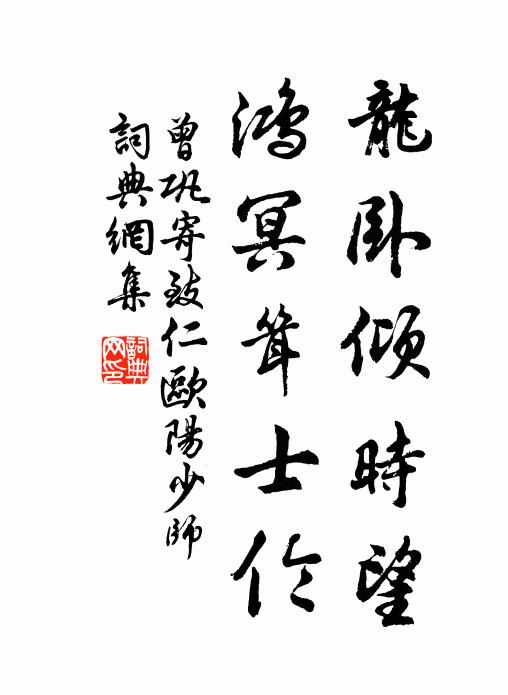 龍卧傾時望
鴻冥聳士倫
曾巩寄致仁歐陽少師
詞典網集
詞典网印